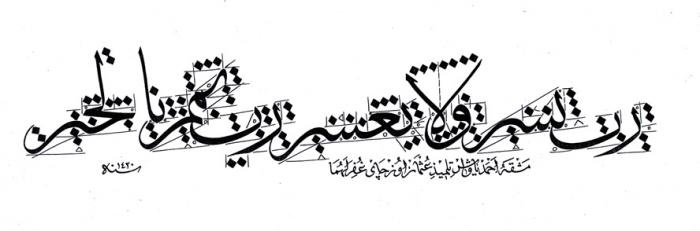 رب يسر ولا تعسر رب تمم بالخير
مشقه احمد تلميذ عثمان اوزچاى غفر لهما
سنه ١٤٢٠